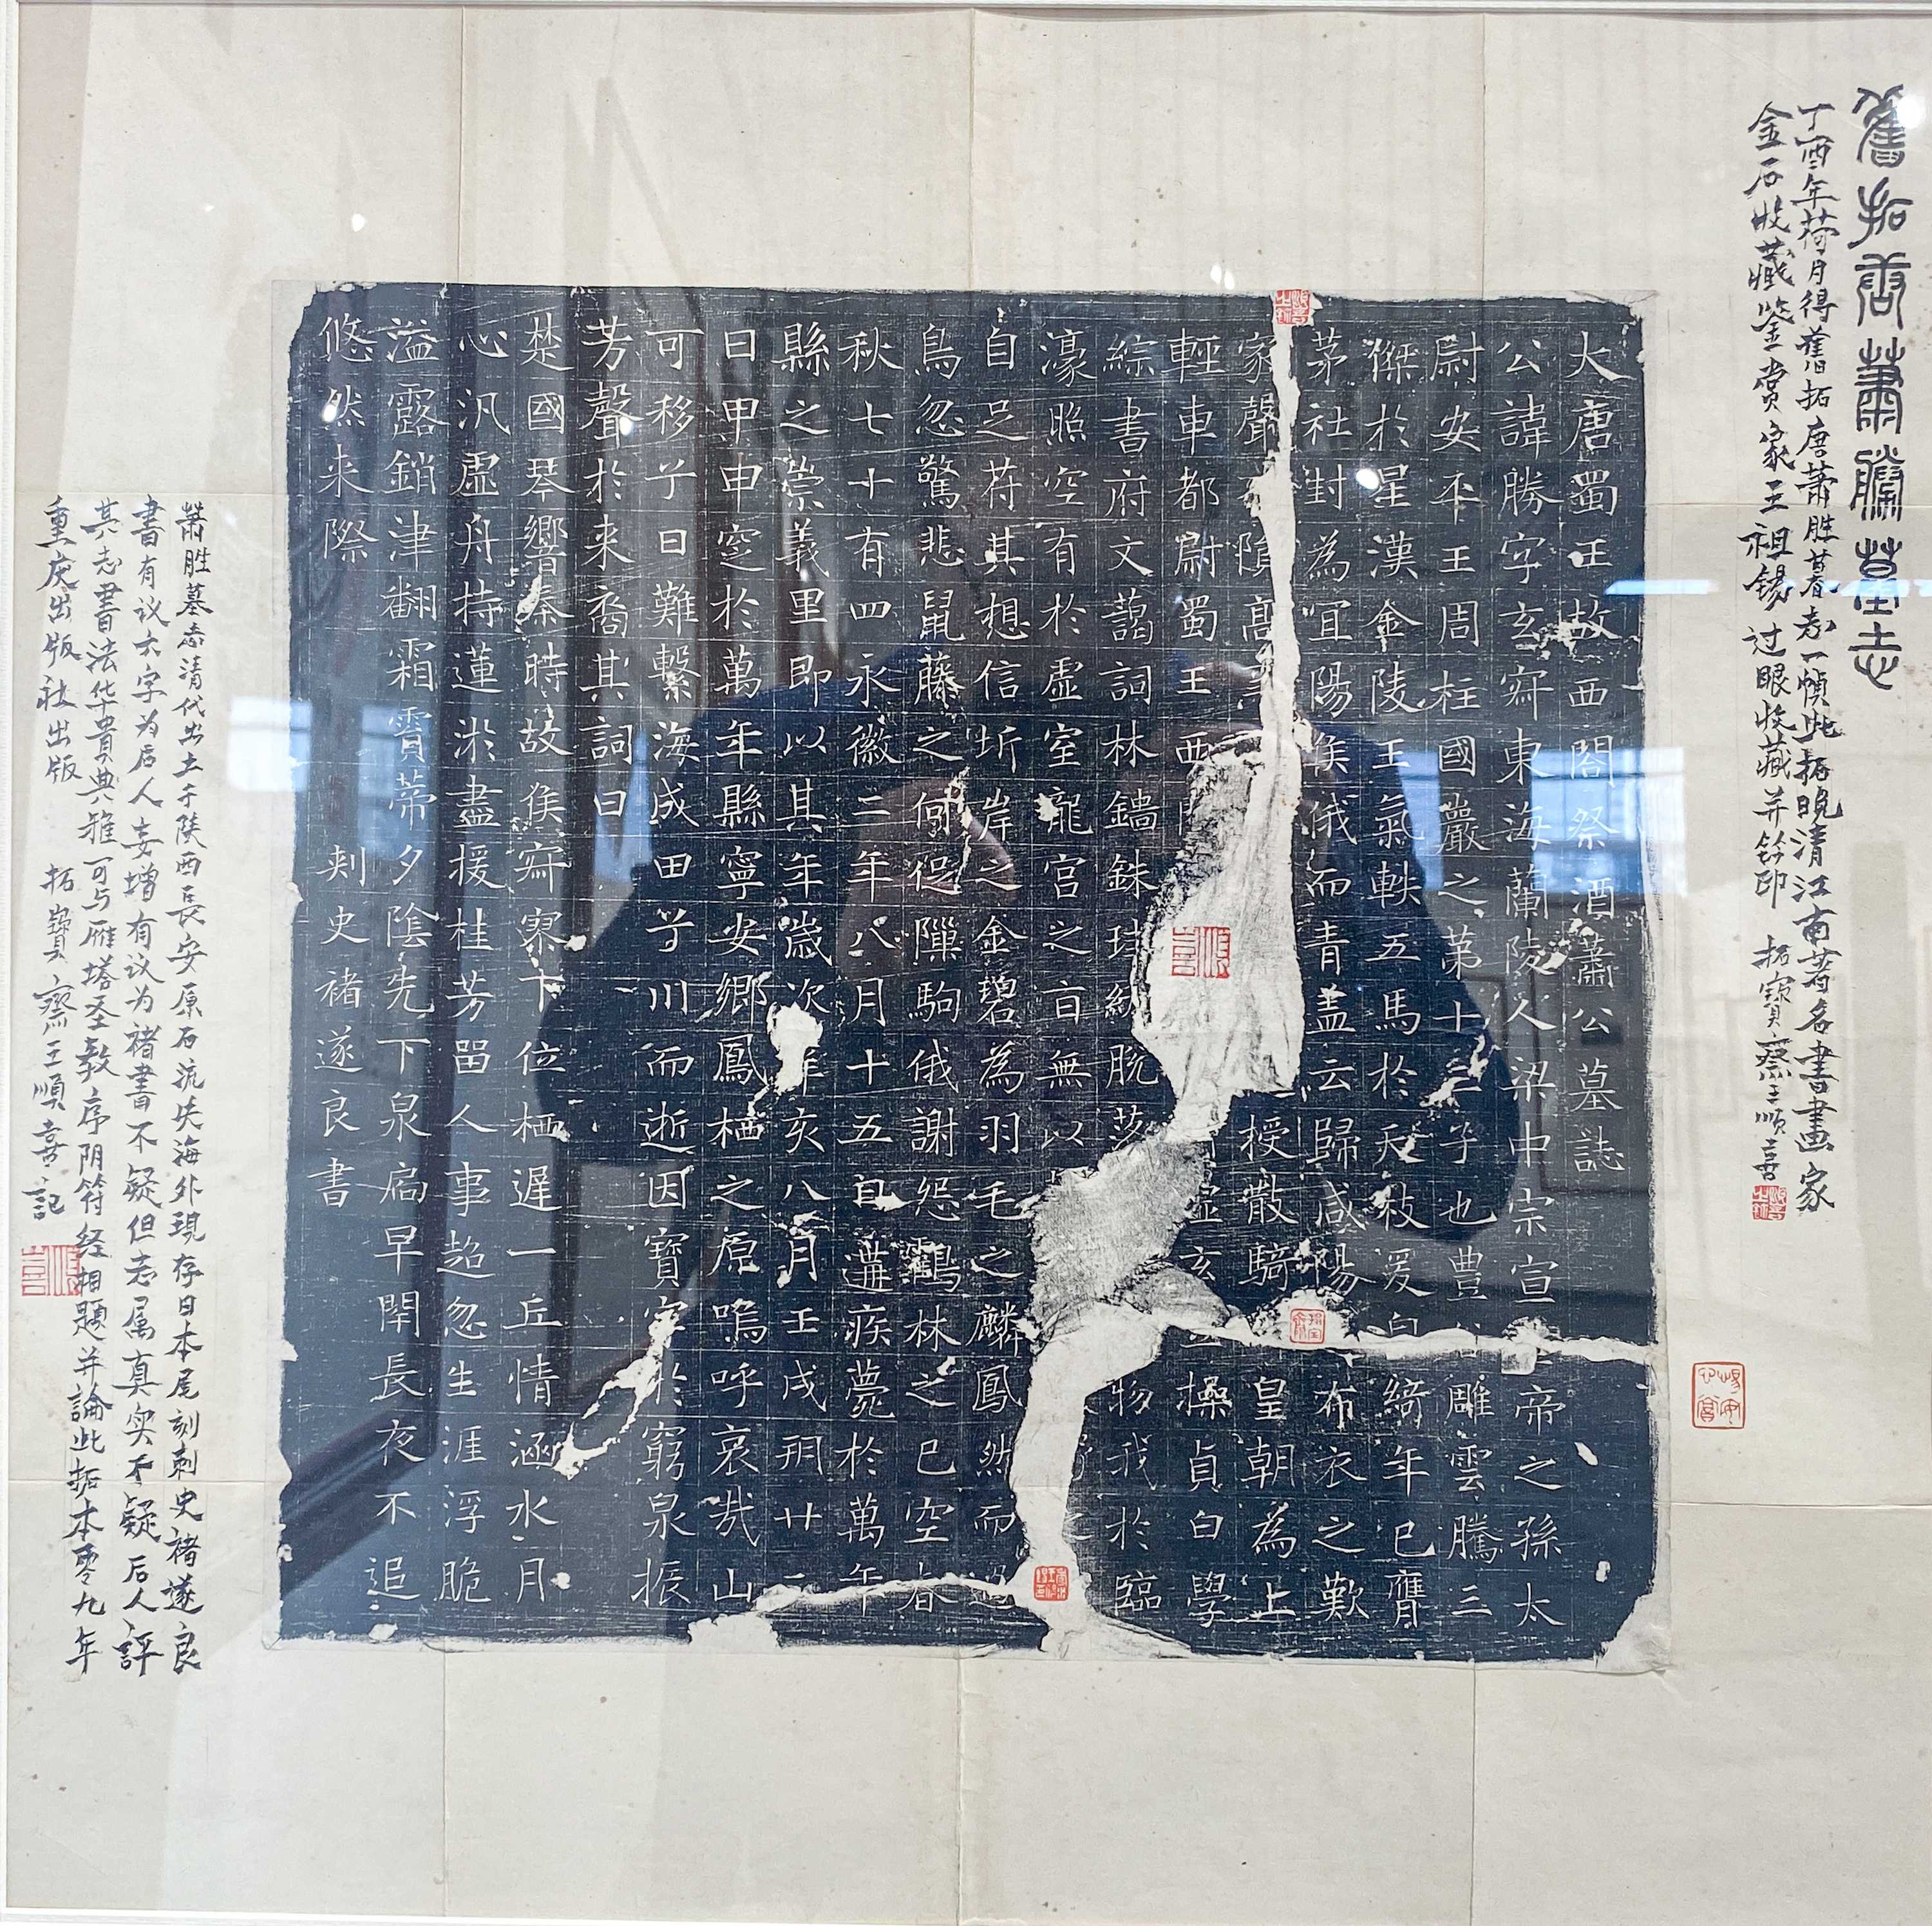 舊拓唐蕭勝墓志
丁酉年荷月得舊拓唐蕭胜墓志一幀此拓晚清江南著名書畫家
金石收藏鉴赏家王祖锡过眼收藏并钤印 拓寶齋王順喜
大唐蜀王故西閤祭酒蕭公墓誌
公諱勝字玄寂東海蘭陵人梁中宗宣皇帝之孫太
尉安平王周柱國巖之第十三子也豊 雕雲騰三
傑於星漢金陵王氣軼五馬於天枝爰自綺年已膺
茅社封為宜陽侯俄而青盖云歸咸陽 布衣之歎
家聲 隕高 授散騎 皇朝為上
輕車都尉蜀王西閤 虛玄 操貞白學
綜書府文藹詞林鏪銖珪紱脫落 物我於臨
濠照空有於虛室寵宮之盲無以
自足苻其想信圻岸之金碧為羽毛之麟鳳然而過
鳥忽驚悲鼠藤之何促隟駒俄謝怨鶴林之已空春
秋七十有四永徽二年八月十五日遘疾薨於萬年
縣之崇義里即以其年歲次辛亥八月壬戌朔廿二
日甲申窆於萬年縣寧安鄉鳳栖之原嗚呼哀哉山
可移兮日難繫海成田兮川而逝因寶字於窮泉振
芳聲於来裔其詞曰
楚國琴響秦時故侯寂寥下位栖遲一丘情涵水月
心汎虛舟持蓮淤盡援桂芳留人事超忽生涯浮脆
溢露銷津翻霜賣蔕夕陰先下泉扃早閈長夜不追
悠然来際 刾史褚遂良書
萧胜墓志清代出土于陕西長安原石流失海外現存日本尾刻刺史褚遂良
書有议六字为后人妄增有议为褚書不疑但志属真实不疑后人評
其志書法华貴典雅可与雁塔圣教序阴符经相題并論此拓本零九年
重庆出版社出版 拓寶齋王順喜記